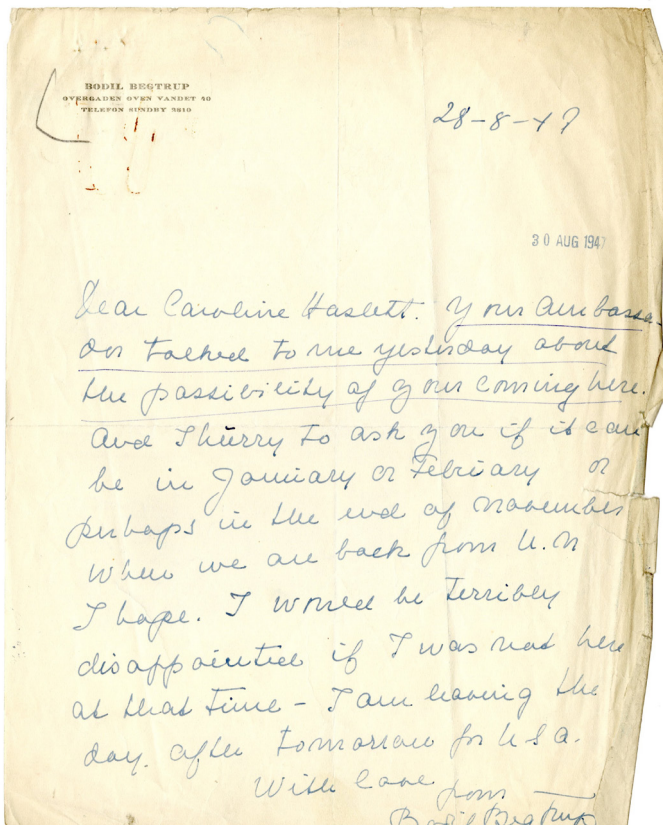 BODIL BEGTRUP
OVERGADEN OVEN VANDET 50
TELEFON SUNDBY 5810
28-8-47
30 AUG 1947
Dear Caroline Haslett. Your Ambassa-
dor talked to me yesterday about
the possibility of your coming here.
And I hurry to ask you if it can
be in January or Febriary or
perhaps in the end of november
when we are back from U.N
I hope. I would be terribly
disappointed if I was not here
at that time - I am leaving the
day. after tomorrow for U S a.
With love from
Bodil Begtrup